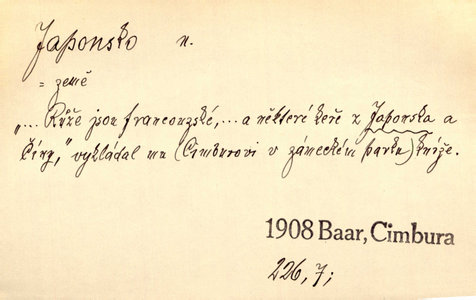 Japonsko n.
= země
„... Růže jsou francouzské,... a některé keře z Japonska a
Číny,“ vykládal mu (Cimburovi v zámeckém parku) kníže.
1908 Baar, Cimbura
226, 7;